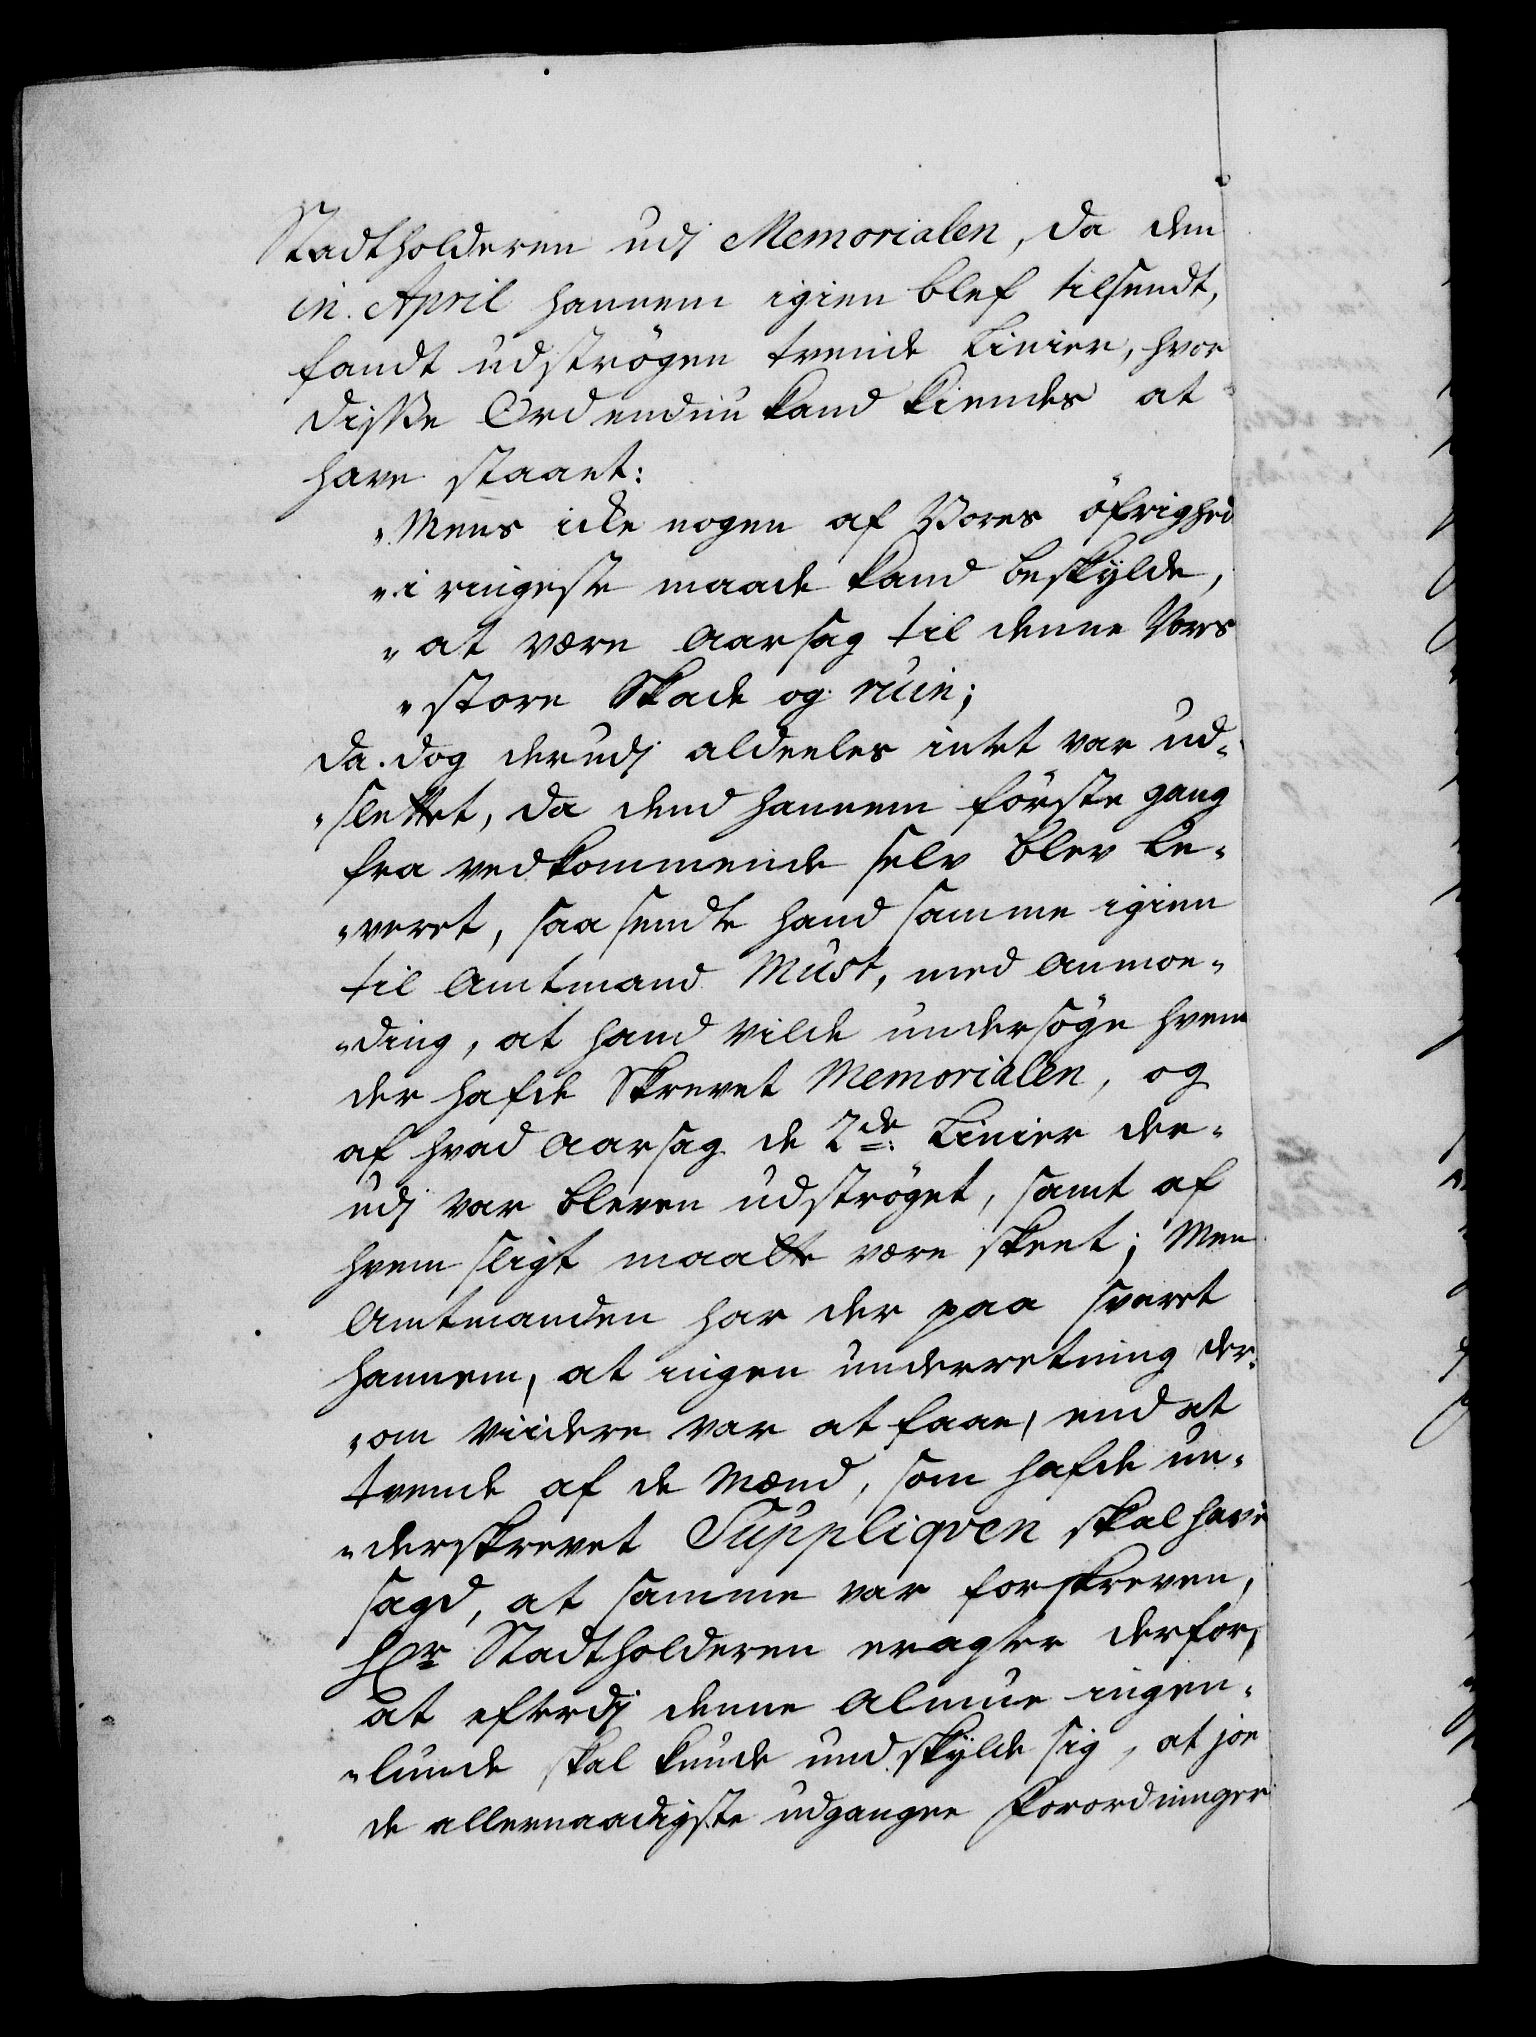 Stadtholderen udj Memorialen, da den
in April hannem igien blef tilsendt,
fandt udströgen tvende Linier, hvor
disse Ord endnu kand kiendes at
have staaet:
"Mens icke nogen af Vores öfrighed
"i ringeste maade kand beskylde,
"at være Aarsag til denne Vores
"store Skade og ruin;
da dog derudj aldeeles intet var ud-
"slettet, da dend hannem förste gang
fra vedkommende selv blev le-
"veret, saa sendte hand samme igien
til Amtmand Must, med Anmoe-
"ding, at hand vilde undersöge hvem
der hafde Skrevet Memorialen, og
af hvad Aarsag de 2de Linier der-
udj var bleven udströget, samt af
hvem sligt maatte være skeet; Men
Amtmanden har der paa svaret
hannem, at ingen underretning der-
"om viidere var at faae, end at
tvende af de Mænd, som hafde un-
"derskrevet Suppliqven skal have
sagd, at samme var forskreven,
Hr Stadtholderen eragter derfor,
at efterdj denne Almue ingen-
"lunde skal kunde undskylde sig, at joe
de allernaadigste udgangne Forordninger